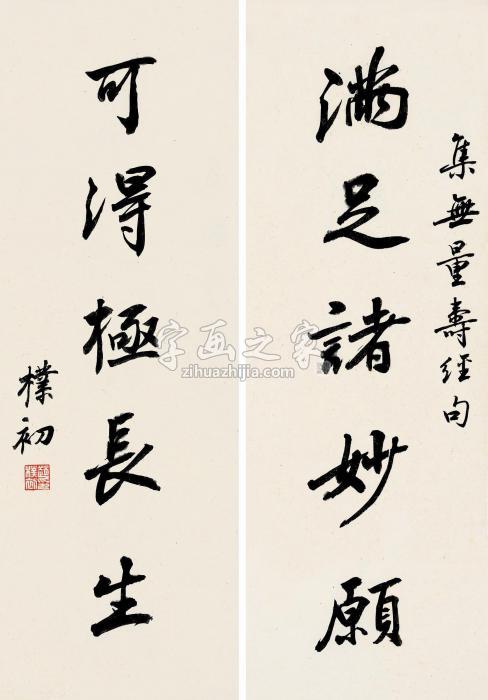 集無量壽經句
滿足諸妙願
可得極長生
樸初
字画之家
zihuazhijia.com